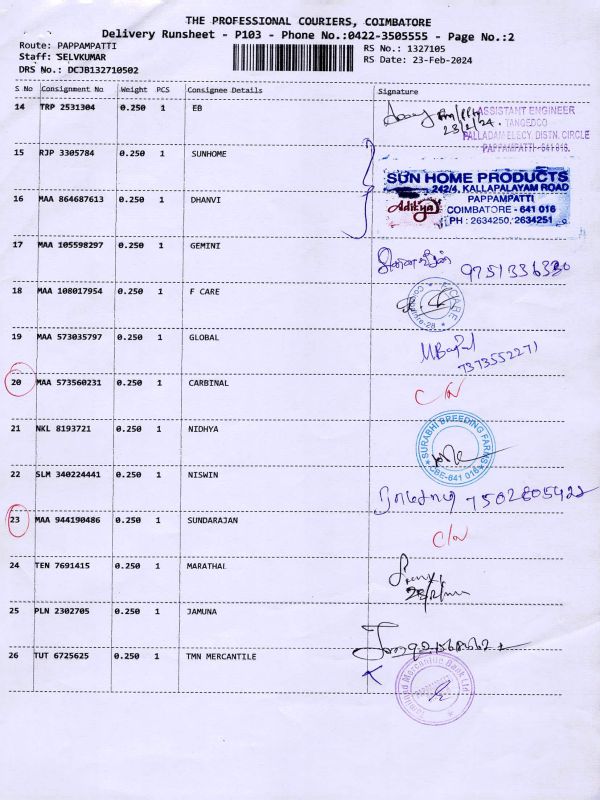 THE PROFESSIONAL COURIERS, COIMBATORE
Delivery Runsheet - P103 - Phone No.:0422-3505555 - Page No.:2
Route: PAPPAMPATTI
Staff: SELVKUMAR
DRS No.: DCJB132710502
RS No.: 1327105
RS Date: 23-Feb-2024
S No Consignment No Weight PCS Consignee Details Signature
14 TRP 2531304 0.250 1 EB
23/2/24.
ASSISTANT ENGINEER
TANGEDCO
PALLADAM ELECY. DISTN. CIRCLE
PAPPAMPATTI - 641 016.
15 RJP 3305784 0.250 1 SUNHOME
SUN HOME PRODUCTS
242/4, KALLAPALAYAM ROAD
PAPPAMPATTI
COIMBATORE - 641 016
PH : 2634250, 2634251
Aditya
16 MAA 864687613 0.250 1 DHANVI
17 MAA 105598297 0.250 1 GEMINI
9751336330
18 MAA 108017954 0.250 1 F CARE
F CARE
Coimbatore-28
19 MAA 573035797 0.250 1 GLOBAL
7373552271
20 MAA 573560231 0.250 1 CARBINAL
C/N
21 NKL 8193721 0.250 1 NIDHYA
SURABHI BREEDING FARMS
CBE-641 016
22 SLM 340224441 0.250 1 NISWIN
7502805422
23 MAA 944190486 0.250 1 SUNDARAJAN
C/N
24 TEN 7691415 0.250 1 MARATHAL
25 PLN 2302705 0.250 1 JAMUNA
26 TUT 6725625 0.250 1 TMN MERCANTILE
Tamilnad Mercantile Bank Ltd